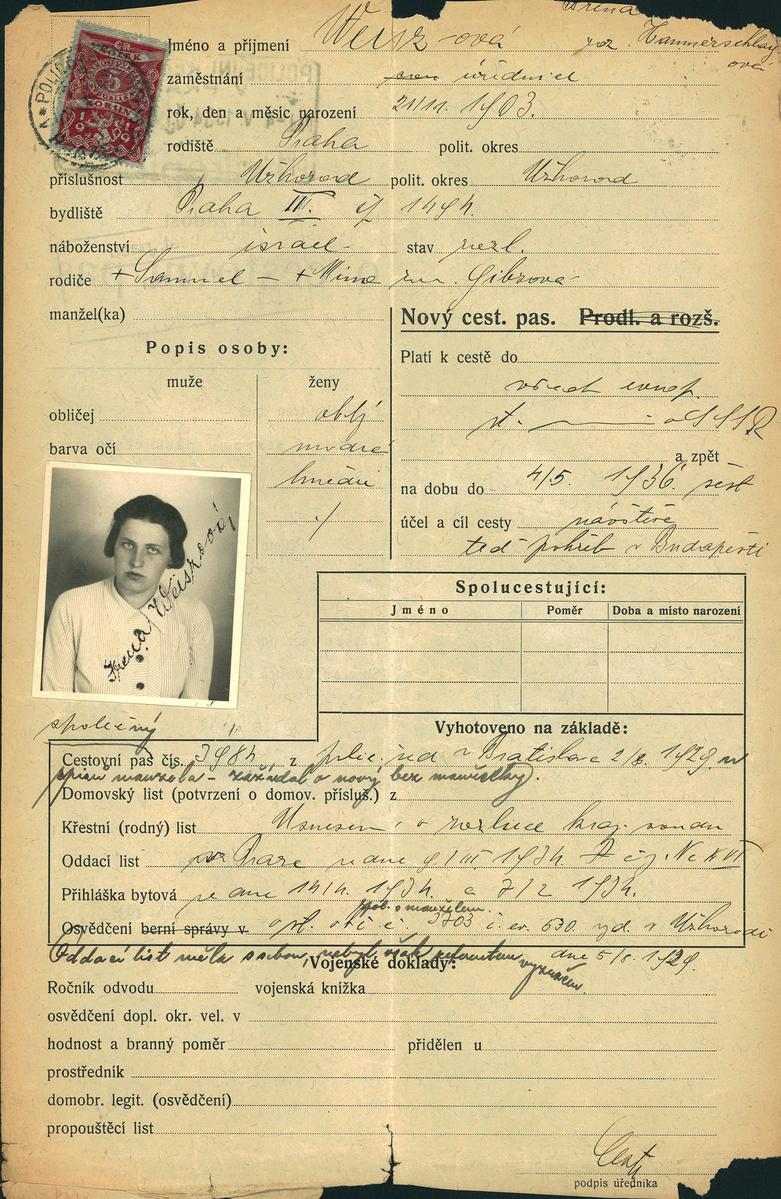 Irena
Jméno a příjmení Weisz-ová roz. Hammerschlag
ová
zaměstnání úřednice
rok, den a měsíc narození 21/11. 1903.
rodiště Praha polit. okres
příslušnost Užhorod polit. okres Užhorod
bydliště Praha III. čj 1494.
náboženství israel. stav rozl.
rodiče +Samuel - +Mina roz. Gibsová
manžel(ka)
Nový cest. pas. Prodl. a rozš.
Popis osoby:
muže ženy
obličej oblý
barva očí modré
hnědé
Platí k cestě do
všech evrop.
st. SSSR
a zpět
na dobu do 4/5. 1936.
účel a cíl cesty návštěva
teď pohřeb v Budapešti
Irena Weiszová
Spolucestující:
Jméno Poměr Doba a místo narození
společný
Vyhotoveno na základě:
Cestovní pas čís. 3984 z polic. řed v Bratislavě 2/8. 1929
manžela - zažádal o nový bez manželky).
Domovský list (potvrzení o domov. přísluš.) z
Křestní (rodný) list Usnesení o rozluce kraj. soudu
Oddací list v Praze ze dne 9/III. 1934.
Přihláška bytová ze dne 14/4. 1934 a 7/2 1934.
manželem
Osvědčení berní správy v 3703 č. ev. 630. v Užhorodě
Oddací list měla s sebou, nebyl však referentem vyznačen
dne 5/8. 1929.
Vojenské doklady:
Ročník odvodu vojenská knížka
osvědčení dopl. okr. vel. v
hodnost a branný poměr přidělen u
prostředník
domobr. legit. (osvědčení)
propouštěcí list
podpis úředníka